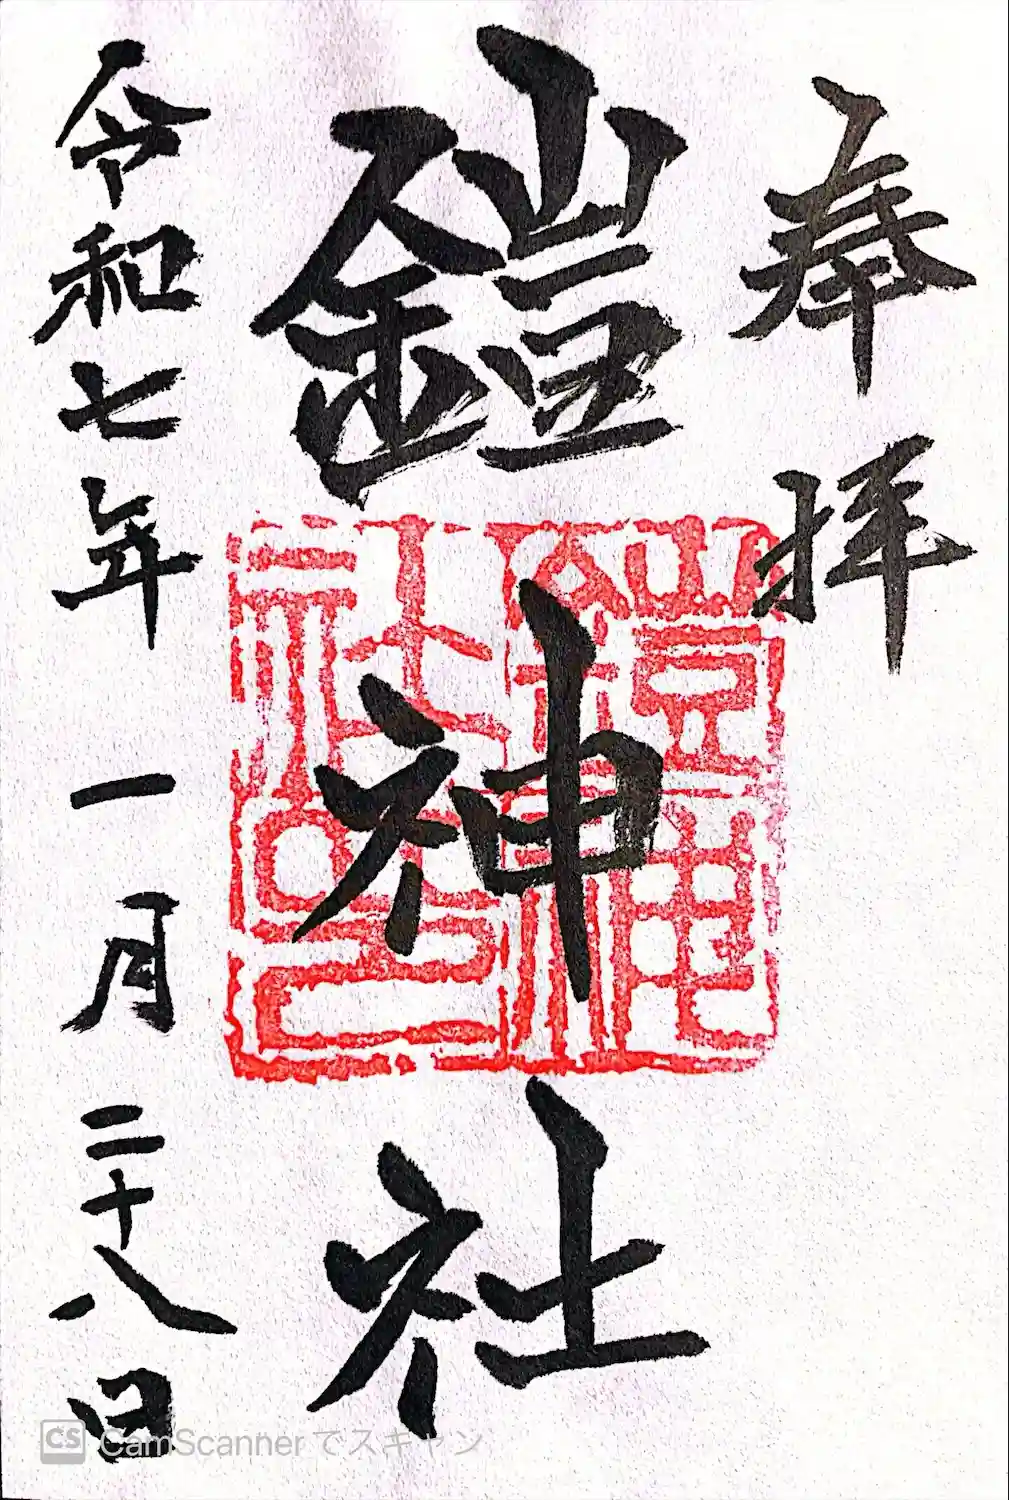 奉拝
鎧神社
鎧神社之印
令和七年一月二十八日
CS CamScannerでスキャン